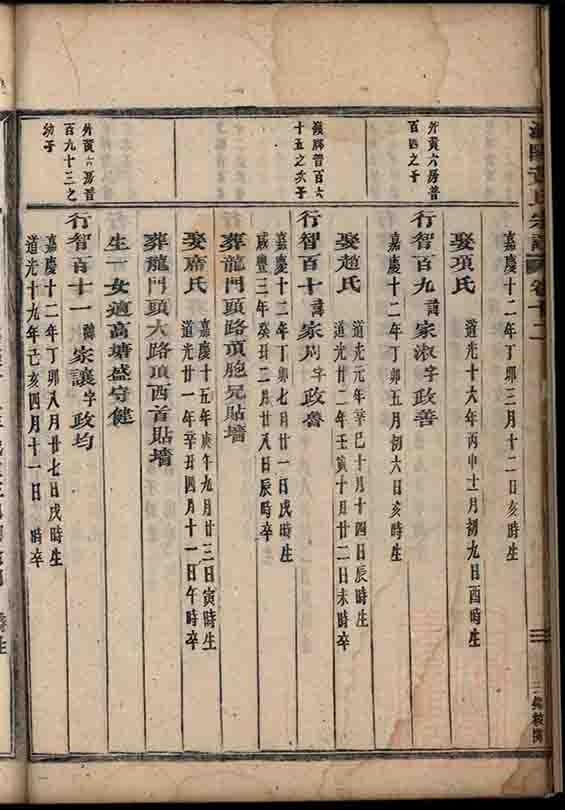 黃氏宗譜 卷十二
嘉慶十二年丁卯三月十二日亥時生
娶項氏
道光十六年丙申十一月初九日酉時生
外黃六房普
百四之子
行智百九諱家淑字政善
嘉慶十二年丁卯五月初六日亥時生
娶趙氏
道光元年辛巳十月十四日辰時生
道光廿二年壬寅十月廿二日未時卒
普百六
十五之次子
行智百十諱家周字政魯
嘉慶十二年丁卯七月廿一日戌時生
咸豐三年癸丑二月廿八日辰時卒
葬龍門頭路頂胞兄貼墻
娶席氏
嘉慶十五年庚午九月廿三日寅時生
道光廿一年辛丑四月十一日午時卒
葬龍門頭大路頂西首貼墻
生一女適高塘盛守健
外黃六房普
百九十三之
幼子
行智百十一諱家讓字政均
嘉慶十二年丁卯八月廿七日戌時生
道光十九年己亥四月十一日 時卒